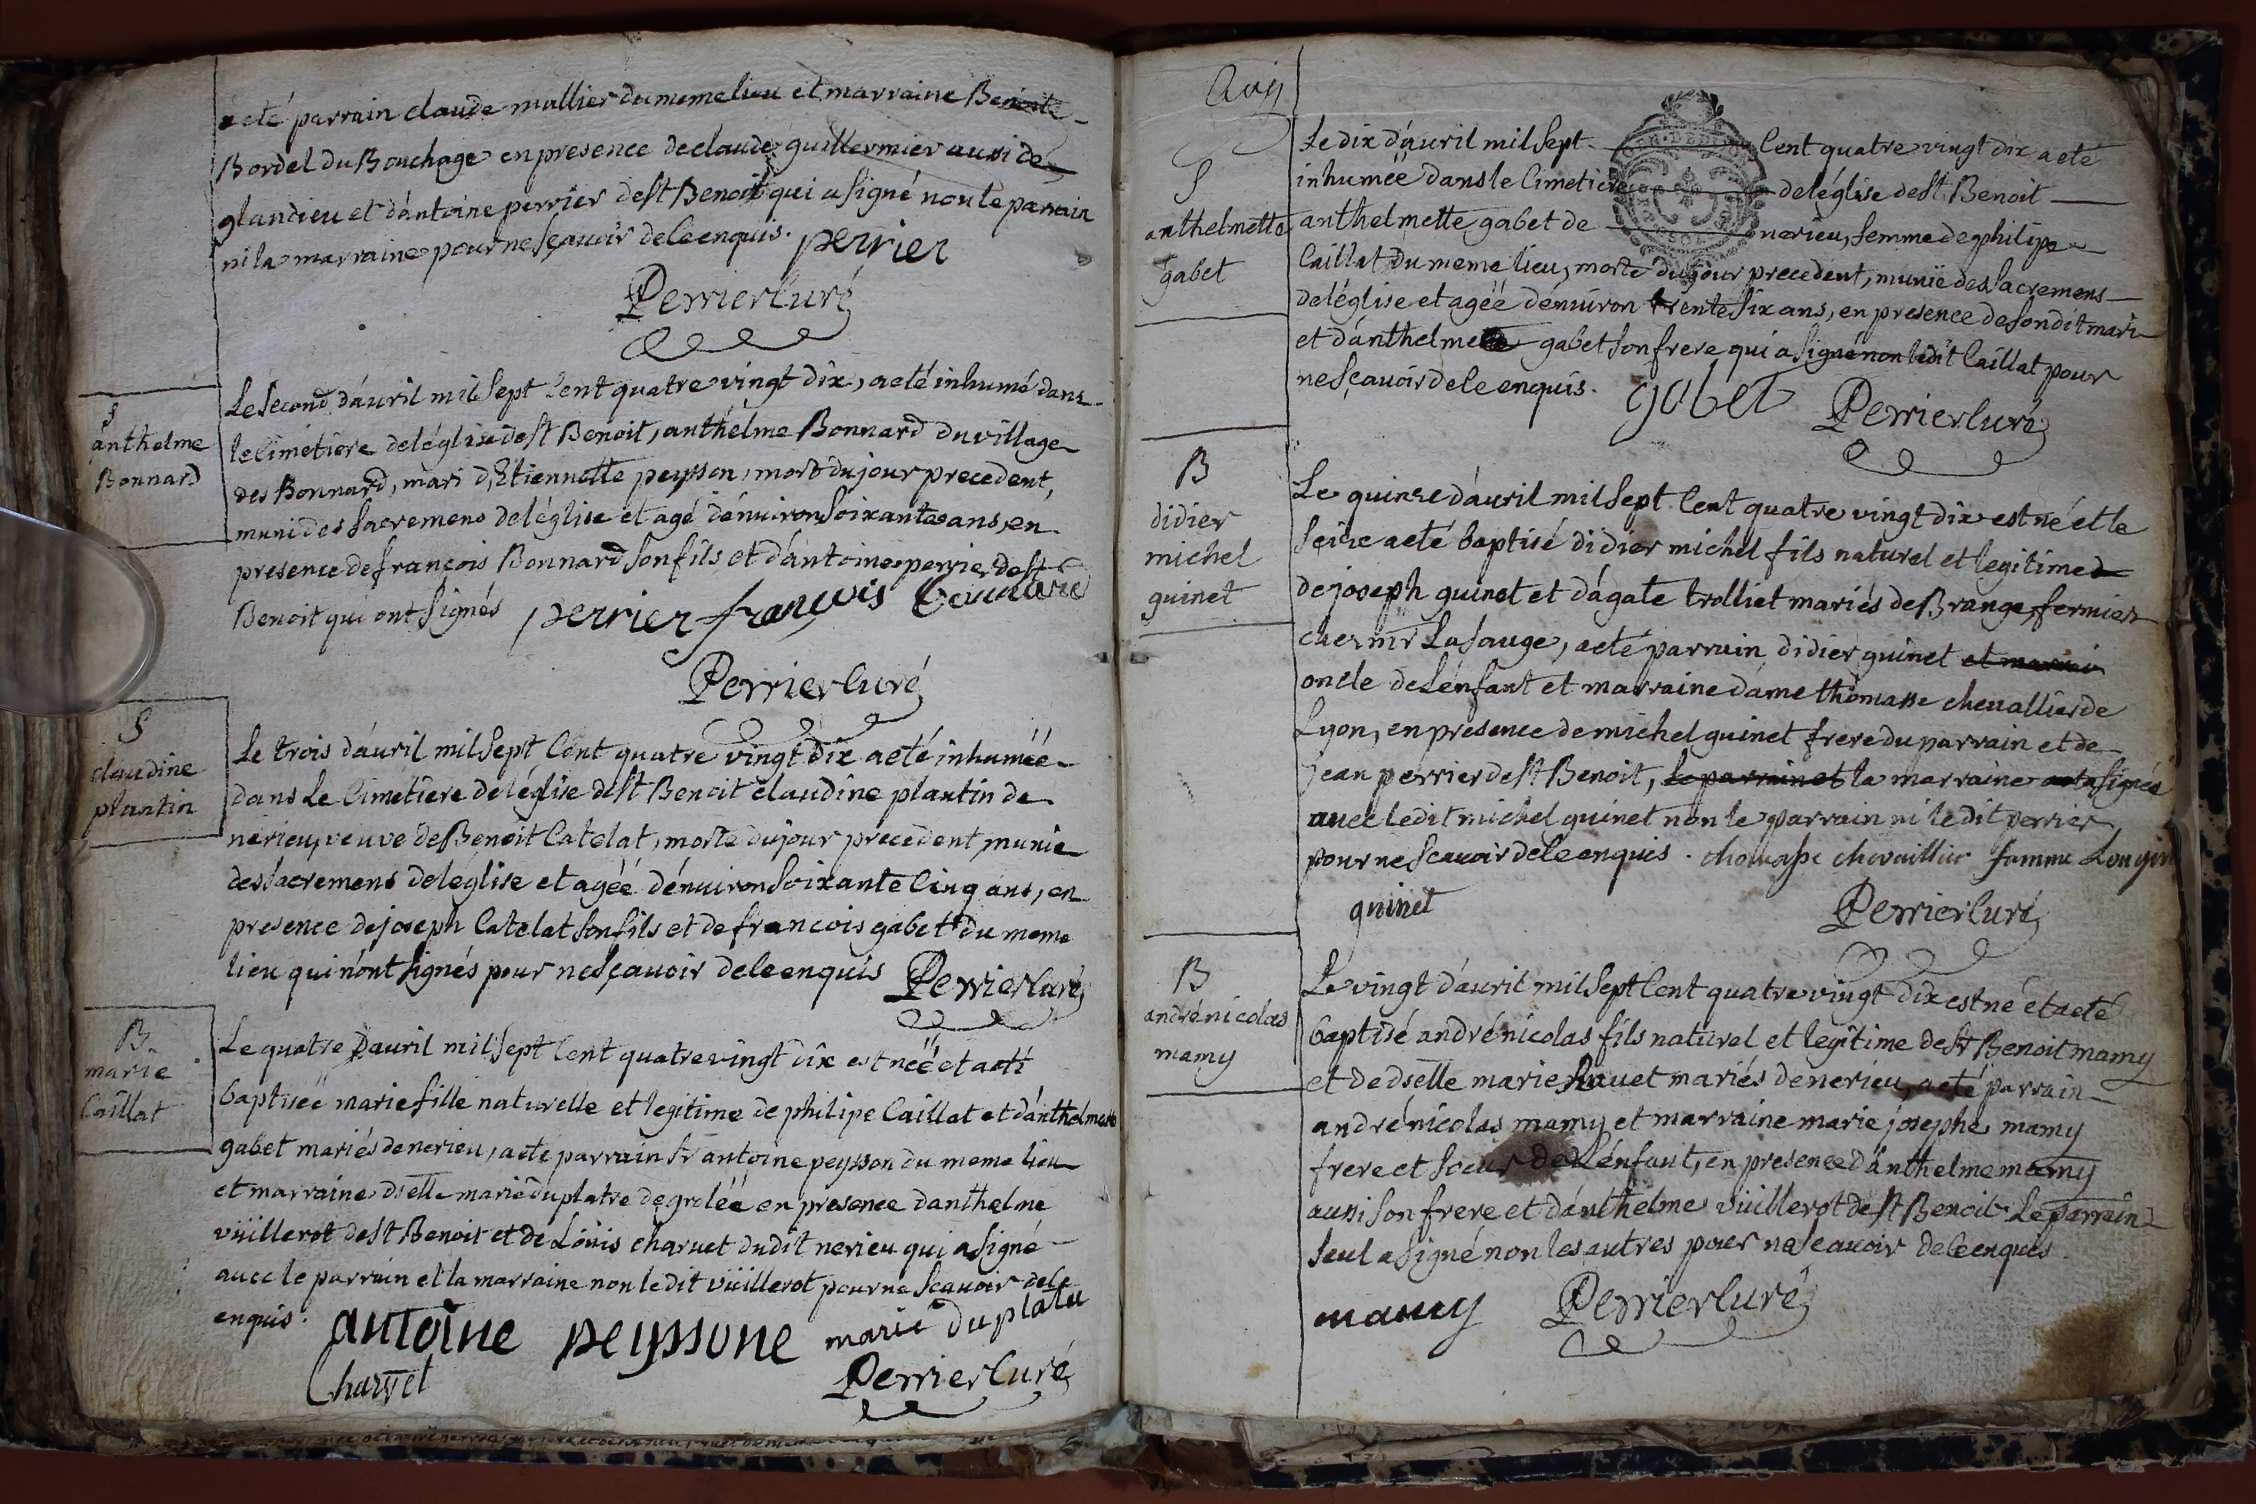 a eté parrain claude mullier du meme lieu et marraine Benoite
Bordel du Bouchage en presence de claude guillermier aussi de
glandieu et d'antoine perrier de st Benoit qui a signé non le parrain
ni la marraine pour ne sçavoir de le enquis. perrier
Perrier Curé
S
anthelme
Bonnard
Le second d'auril mil sept Cent quatre vingt dix, a eté inhumé dans
le Cimetiere de l'église de st Benoit, anthelme Bonnard du village
des Bonnard, mari d'Etiennette peysson, mort du jour precedent,
muni des sacremens de l'église et agé d'enuiron soixante ans, en
presence de françois Bonnard son fils et d'antoine perrier de st
Benoit qui ont signés perrier françois Bonnard
Perrier Curé
S
claudine
plantin
Le trois d'auril mil sept Cent quatre vingt dix a eté inhumée
dans Le Cimetiere de l'église de st Benoit claudine plantin de
nerieu, veuve de Benoit Catelat, morte du jour precedent, munie
des sacremens de l'église et agéé d'enuiron soixante Cinq ans, en
presence de joseph Catelat son fils et de francois gabet du meme
lieu qui n'ont signés pour ne sçauoir de le enquis Perrier Curé
B
marie
Caillat
Le quatre D'auril mil sept Cent quatre vingt dix est néé et a eté
baptiséé marie fille naturelle et legitime de philipe Caillat et d'anthelmette
gabet mariés de nerieu, a eté parrain sr antoine peysson du meme lieu
et marraine dselle marie duplatre de groléé en presence d'anthelme
vüillerot de st Benoit et de Loüis charuet dudit nerieu qui a signé
auec le parrain et la marraine non le dit vüillerot pour ne scauoir de le
enquis. antoine peyssone marie duplatre
Charvet Perrier Curé
S
anthelmette
gabet
Le dix d'auril mil sept Cent quatre vingt dix a eté
inhumée dans le Cimetiere de l'église de st Benoit
anthelmette gabet de nerieu, femme de philipe
Caillat du meme lieu, morte du jour precedent, munie des sacremens
de l'église et agéé d'enuiron trente six ans, en presence de son dit mari
et d'anthelme gabet son frere qui a signé non ledit Caillat pour
ne sçauoir de le enquis. gabet Perrier Curé
B
didier
michel
guinet
Le quinze d'auril mil sept Cent quatre vingt dix est né et le
seize a eté baptisé didier michel fils naturel et legitime
de joseph guinet et d'agate trolliet mariés de Brange, fermier
chez mr Lasauge, a eté parrain didier guinet et marrai
oncle de L'enfant et marraine dáme thomasse chevallier de
Lyon, en presence de michel guinet frere du parrain et de
jean perrier de st Benoit, le parrain et la marraine a signés
auec ledit michel guinet non le parrain ni le dit perrier
pour ne scauoir de le enquis. thomasse chevaillier famme Longin
guinet Perrier Curé
B
andré nicolas
mamy
Le vingt d'auril mil sept Cent quatre vingt dix est né et a eté
baptisé andré nicolas fils naturel et legitime de sr Benoit mamy
et de dselle marie Ravet mariés de nerieu, a eté parrain
andré nicolas mamy et marraine marie josephe mamy
frere et soeur de L'enfant, en presence d'anthelme mamy
aussi son frere et d'anthelme vüillerot de st Benoit. Le parrain
seul a signé non les autres pour ne scauoir de le enquis.
mamy Perrier Curé